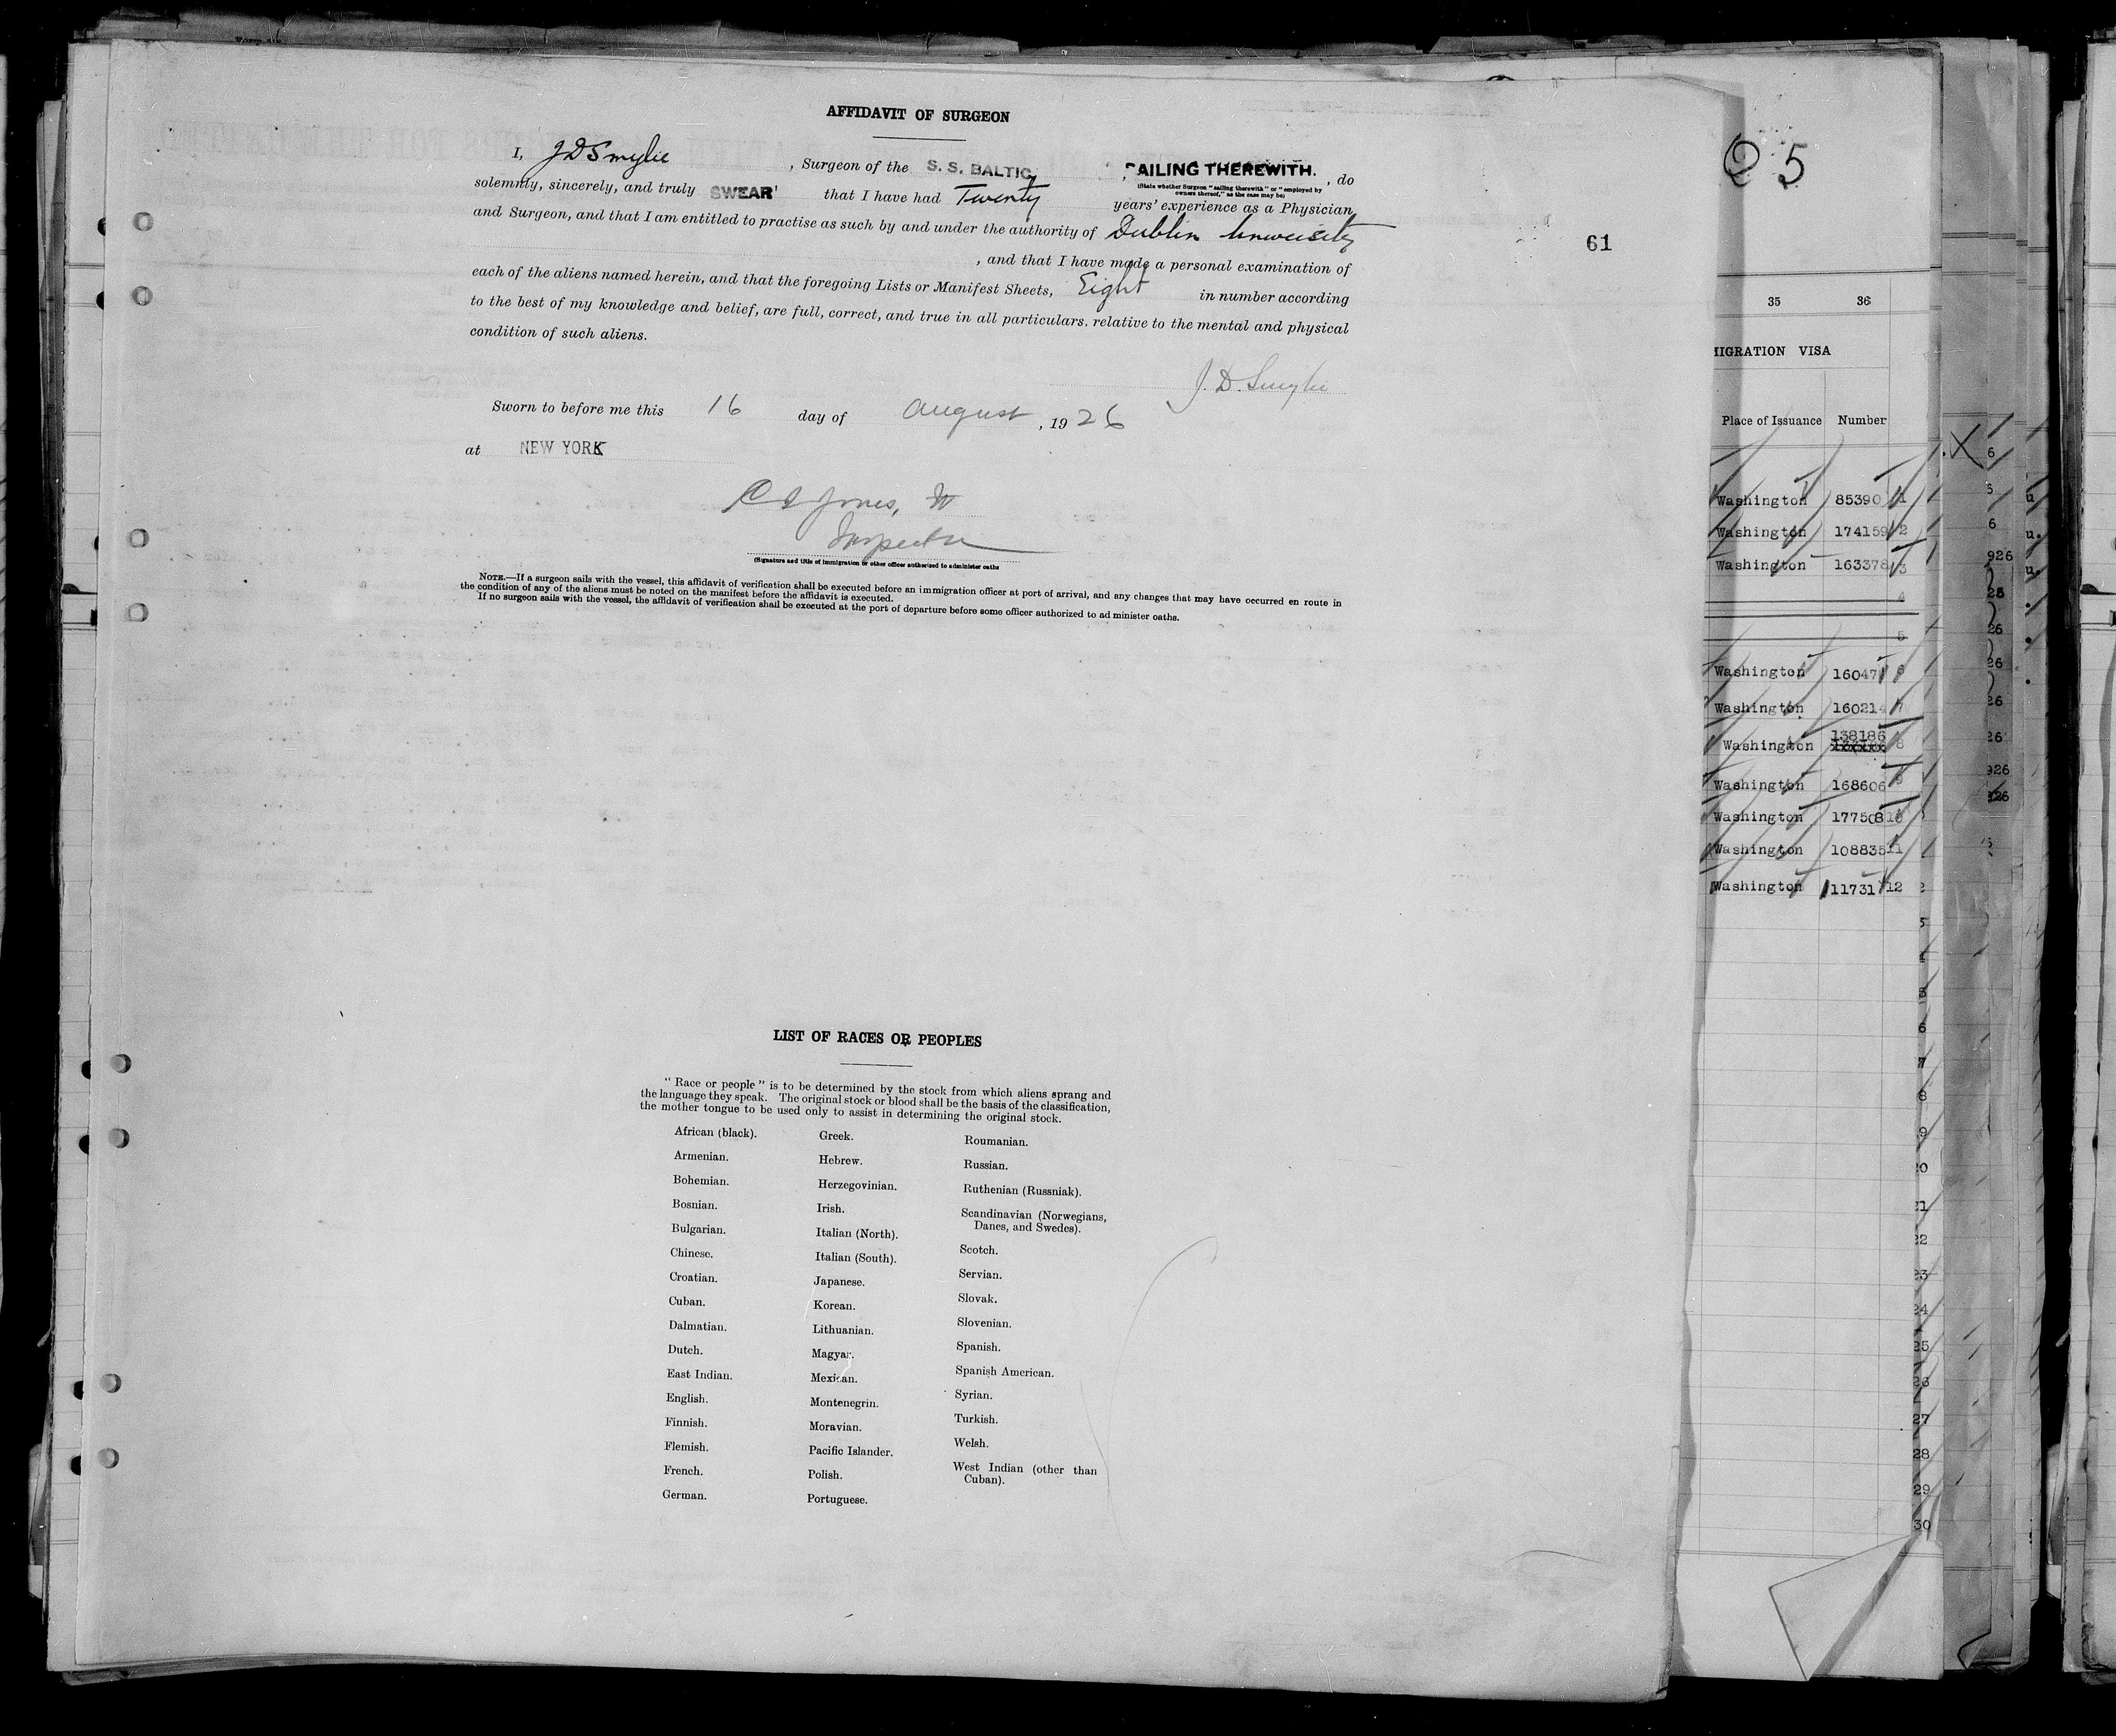 AFFIDAVIT OF SURGEON
I, J D Smylie , Surgeon of the S. S. BALTIC, SAILING THEREWITH. , do
(State whether Surgeon "sailing therewith" or "employed by
owners thereof," as the case may be)
solemnly, sincerely, and truly SWEAR that I have had Twenty years' experience as a Physician
and Surgeon, and that I am entitled to practise as such by and under the authority of Dublin University
, and that I have made a personal examination of
each of the aliens named herein, and that the foregoing Lists or Manifest Sheets, Eight in number according
to the best of my knowledge and belief, are full, correct, and true in all particulars, relative to the mental and physical
condition of such aliens.
J. D. Smylie
Sworn to before me this 16 day of August , 19 26
at NEW YORK
Jones,
Inspector
(Signature and title of immigration or other officer authorized to administer oaths
NOTE.—If a surgeon sails with the vessel, this affidavit of verification shall be executed before an immigration officer at port of arrival, and any changes that may have occurred en route in
the condition of any of the aliens must be noted on the manifest before the affidavit is executed.
If no surgeon sails with the vessel, the affidavit of verification shall be executed at the port of departure before some officer authorized to ad minister oaths.
LIST OF RACES OR PEOPLES
"Race or people" is to be determined by the stock from which aliens sprang and
the language they speak. The original stock or blood shall be the basis of the classification,
the mother tongue to be used only to assist in determining the original stock.
African (black).
Armenian.
Bohemian.
Bosnian.
Bulgarian.
Chinese.
Croatian.
Cuban.
Dalmatian.
Dutch.
East Indian.
English.
Finnish.
Flemish.
French.
German.
Greek.
Hebrew.
Herzegovinian.
Irish.
Italian (North).
Italian (South).
Japanese.
Korean.
Lithuanian.
Magyar.
Mexican.
Montenegrin.
Moravian.
Pacific Islander.
Polish.
Portuguese.
Roumanian.
Russian.
Ruthenian (Russniak).
Scandinavian (Norwegians,
Danes, and Swedes).
Scotch.
Servian.
Slovak.
Slovenian.
Spanish.
Spanish American.
Syrian.
Turkish.
Welsh.
West Indian (other than
Cuban).
61
25
35 36
MIGRATION VISA
Place of Issuance Number
Washington 85390 1
Washington 174159 2
Washington 163378 3
4
5
Washington 16047 6
Washington 160214 7
138186
Washington 8
Washington 168606 9
Washington 177508 10
Washington 108835 11
Washington 11731 12
20
21
22
23
24
25
26
27
28
29
30